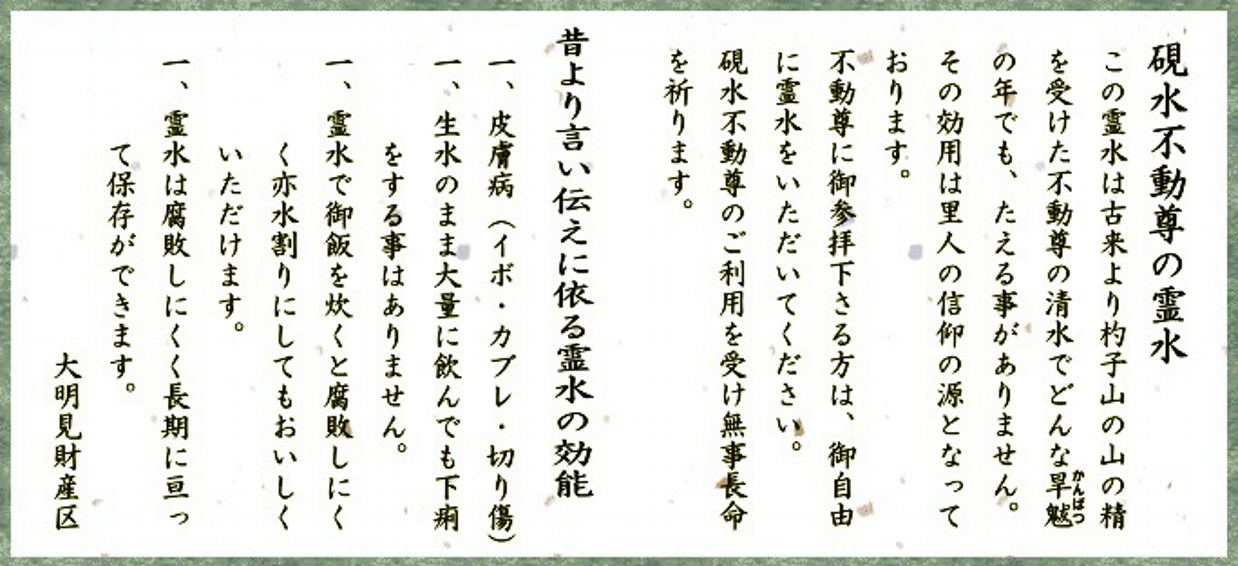 硯水不動尊の霊水
この霊水は古来より杓子山の山の精
を受けた不動尊の清水でどんな旱魃
かんばつ
の年でも、たえる事がありません。
その効用は里人の信仰の源となって
おります。
不動尊に御参拝下さる方は、御自由
に霊水をいただいてください。
硯水不動尊のご利用を受け無事長命
を祈ります。
昔より言い伝えに依る霊水の効能
一、皮膚病（イボ・カブレ・切り傷）
一、生水のまま大量に飲んでも下痢
をする事はありません。
一、霊水で御飯を炊くと腐敗しにく
く亦水割りにしてもおいしく
いただけます。
一、霊水は腐敗しにくく長期に亘っ
て保存ができます。
大明見財産区